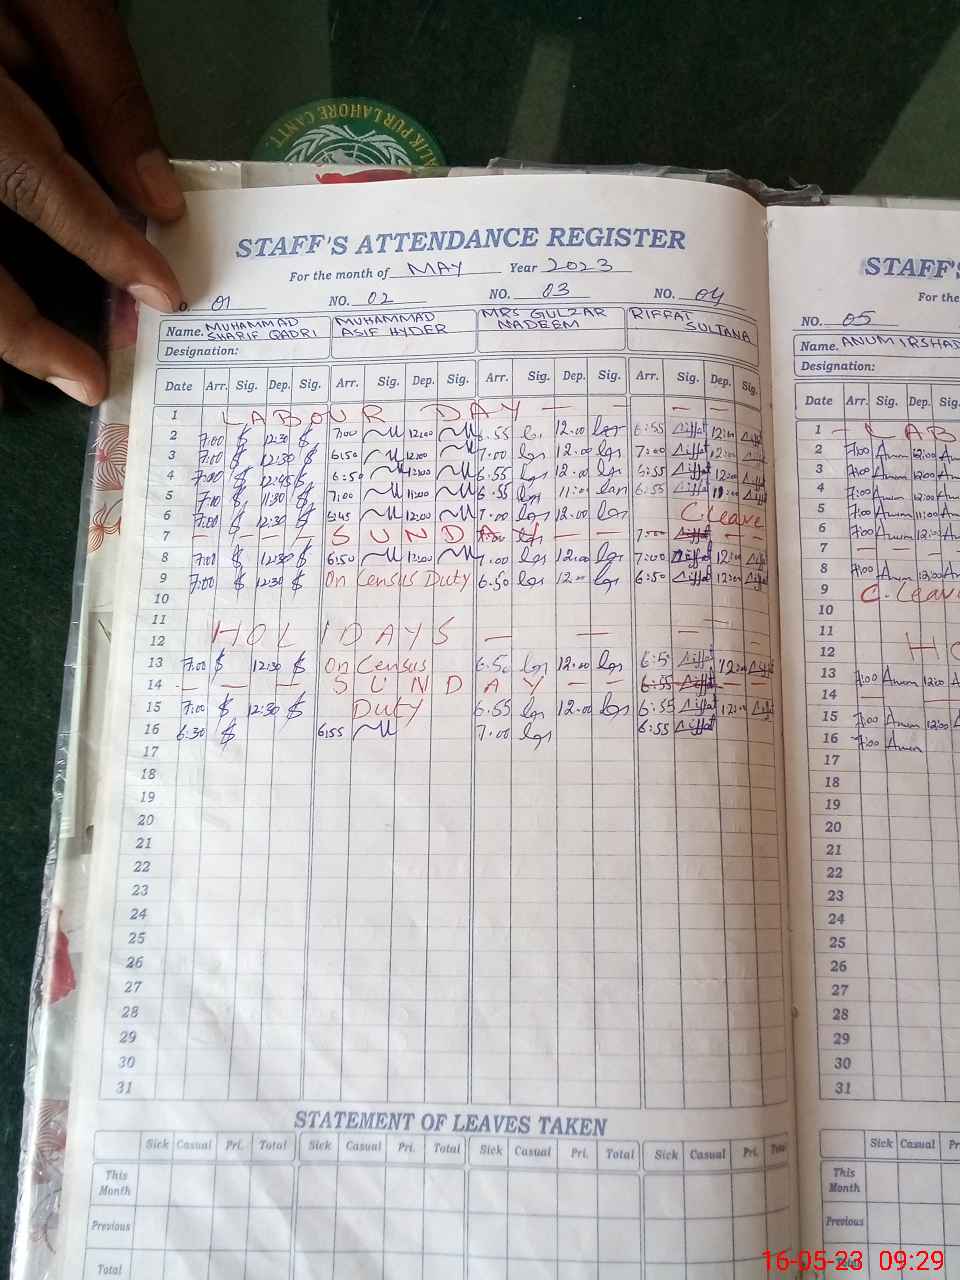 ALIK PUR LAHORE CANTT.
STAFF'S ATTENDANCE REGISTER
For the month of MAY Year 2023
O. 01 NO. 02 NO. 03 NO. 04
Name. MUHAMMAD SHARIF QADRI MUHAMMAD ASIF HYDER MRS GULZAR NADEEM RIFFAT SULTANA
Designation:
Date Arr. Sig. Dep. Sig. Arr. Sig. Dep. Sig. Arr. Sig. Dep. Sig. Arr. Sig. Dep. Sig.
1 LABOUR DAY — — —
2 7:00 12:30 7:00 12:00 6.55 12.00 6:55 12:00
3 7:00 12:30 6:50 12:00 7.00 12.00 7:00 12:00
4 7:00 12:45 6:50 12:00 6.55 12.00 6:55 12:00
5 7:00 11:30 7:00 11:00 6.55 11:00 6:55 11:00
6 7:00 12:30 6:45 12:00 7.00 12.00 C.Leave
7 — — — SUNDAY 7:00 — —
8 7:00 12:30 6:50 12:00 7.00 12:00 7:00 12:00
9 7:00 12:30 On Census Duty 6.50 12.00 6:50 12:00
10
11
12 HOLIDAYS — — —
13 7:00 12:30 On Census 6.50 12.00 6:5 12:00
14 — — — SUNDAY — — 6:55 —
15 7:00 12:30 Duty 6.55 12.00 6:55 12:00
16 6:30 6:55 7.00 6:55
17
18
19
20
21
22
23
24
25
26
27
28
29
30
31
STATEMENT OF LEAVES TAKEN
Sick Casual Pri. Total Sick Casual Pri. Total Sick Casual Pri. Total Sick Casual Pri. Total
This Month
Previous
Total
STAFF'S
For the
NO. 05
Name. ANUM IRSHAD
Designation:
Date Arr. Sig. Dep. Sig.
1 — LAB
2 7:00 Anum 12:00 An
3 7:00 Anum 12:00 An
4 7:00 Anum 12:00 An
5 7:00 Anum 11:00 An
6 7:00 Anum 12:00 An
7 — — —
8 7:00 Anum 12:00 An
9 C. Leave
10
11
12 HO
13 7:00 Anum 12:00 A
14 —
15 7:00 Anum 12:00
16 7:00 Anum
17
18
19
20
21
22
23
24
25
26
27
28
29
30
31
Sick Casual Pr
This Month
Previous
Total
16-05-23 09:29